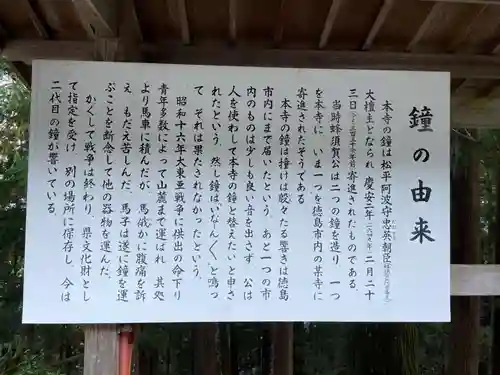 鐘の由来
本寺の鐘は松平阿波守忠英朝臣
大檀主となられ 慶安二年(一六四九年)二月二十
三日 寄進されたものである。
当時蜂須賀公は二つの鐘を造り 一つ
を本寺に いま一つを徳島市内の某寺に
寄進されたそうである
本寺の鐘は撞けば殷々たる響きは徳島
市内にまで届いたという。あと一つの市
内のものは少しも良い音を出さず 公は
人を使わして本寺の鐘と替えたいと申さ
れたという。然し鐘はいな〱〱と鳴っ
て それは果たされなかったという。
昭和十六年大東亜戦争に供出の命下り
青年多数によって山麓まで運ばれ 其処
より馬車に積んだが、馬俄かに腹痛を訴
え もだえ苦しんだ。馬子は遂に鐘を運
ぶことを断念して他の器物を運んだ。
かくして戦争は終わり、県文化財とし
て指定を受け 別の場所に保存し、今は
二代目の鐘が響いている。